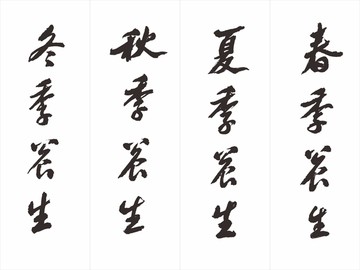 春季养生
夏季养生
秋季养生
冬季养生